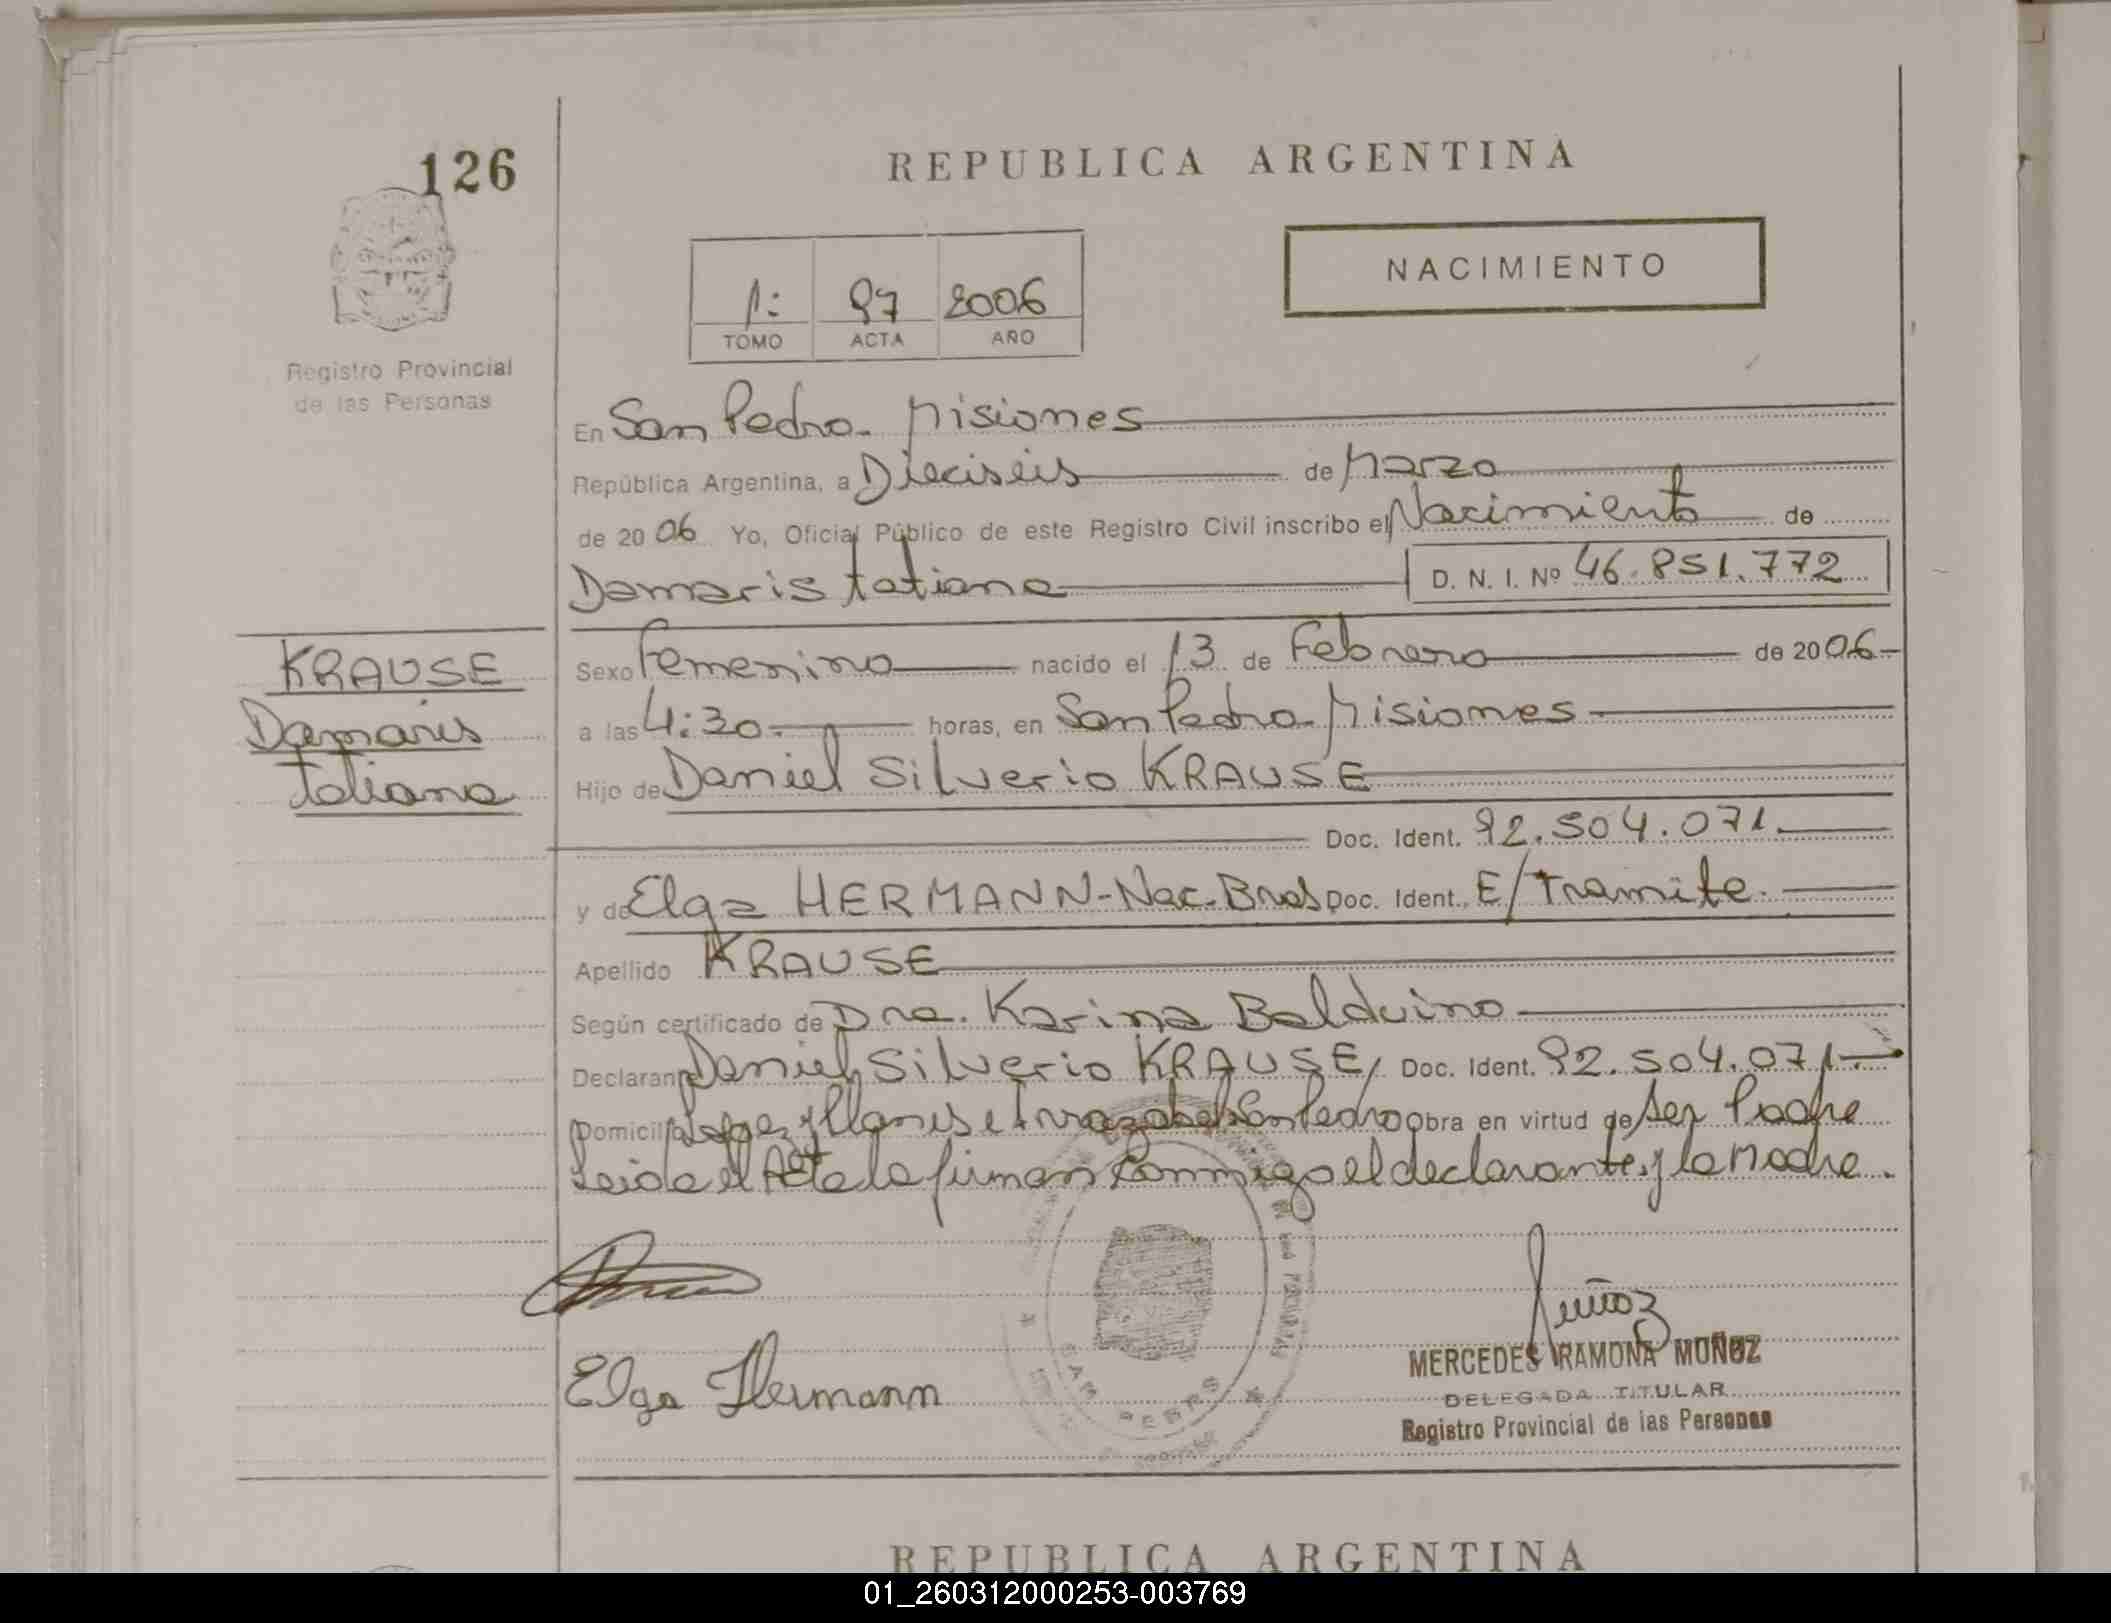 126
REPUBLICA ARGENTINA
NACIMIENTO
1: 97 2006
TOMO ACTA AÑO
Registro Provincial
de las Personas
En San Pedro - Misiones
República Argentina, a Dieciséis de Marzo
de 2006 Yo, Oficial Público de este Registro Civil inscribo el Nacimiento de
Damaris tatiana D. N. I. Nº 46.851.772
KRAUSE
Damaris
tatiana
Sexo Femenino nacido el 13 de Febrero de 2006-
a las 4:30. horas, en San Pedro - Misiones
Hijo de Daniel Silverio KRAUSE
Doc. Ident. 92.504.071.
y de Elga HERMANN-Nac. Bras. Doc. Ident. E/Tramite.
Apellido KRAUSE
Según certificado de Dra. Karina Balduino
Declarante Daniel Silverio KRAUSE/ Doc. Ident. 92.504.071.-
Domicilio Lopez y Planes e Irrazabal San Pedro Obra en virtud de ser Padre
Leida el Acta la firman Conmigo el declarante y la Madre.
Elga Hermann
Muñoz
MERCEDES RAMONA MUÑOZ
DELEGADA TITULAR
Registro Provincial de las Personas
SAN PEDRO
REPUBLICA ARGENTINA
01_260312000253-003769